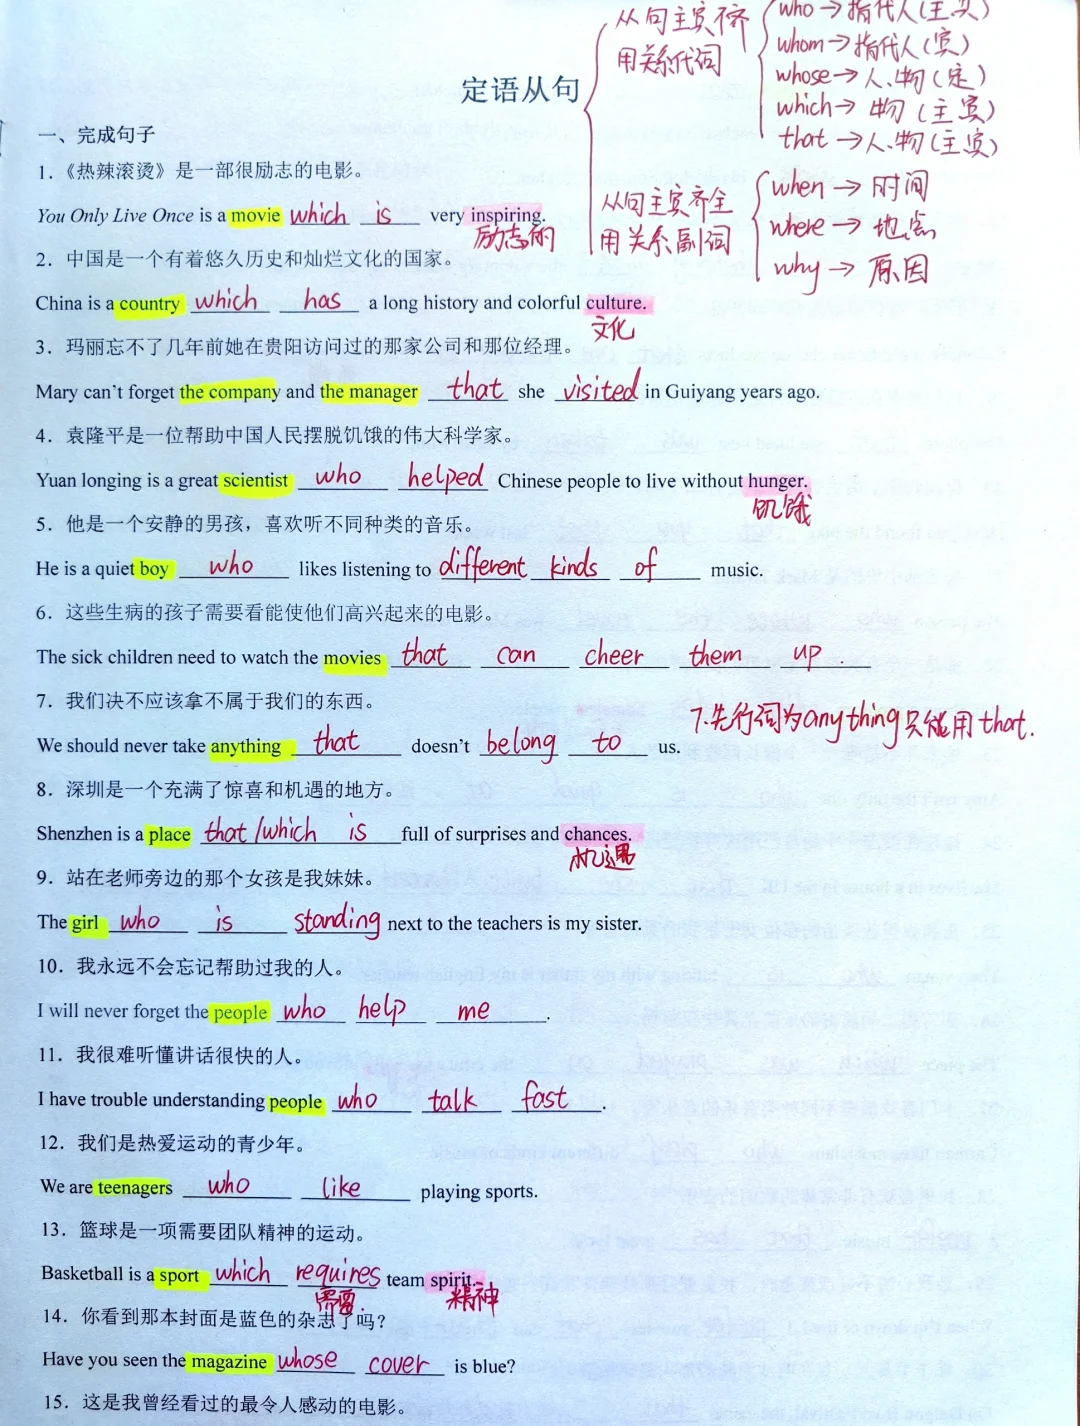 从句主宾不齐
用关系代词
who→指代人(主、宾)
whom→指代人(宾)
whose→人、物(定)
which→物(主宾)
that→人、物(主宾)
从句主宾齐全
用关系副词
when→时间
where→地点
why→原因
定语从句
一、完成句子
1.《热辣滚烫》是一部很励志的电影。
You Only Live Once is a movie which is very inspiring.
励志的
2. 中国是一个有着悠久历史和灿烂文化的国家。
China is a country which has a long history and colorful culture.
文化
3. 玛丽忘不了几年前她在贵阳访问过的那家公司和那位经理。
Mary can't forget the company and the manager that she visited in Guiyang years ago.
4. 袁隆平是一位帮助中国人民摆脱饥饿的伟大科学家。
Yuan longing is a great scientist who helped Chinese people to live without hunger.
饥饿
5. 他是一个安静的男孩，喜欢听不同种类的音乐。
He is a quiet boy who likes listening to different kinds of music.
6. 这些生病的孩子需要看能使他们高兴起来的电影。
The sick children need to watch the movies that can cheer them up.
7. 我们决不应该拿不属于我们的东西。
7.先行词为anything只能用that.
We should never take anything that doesn't belong to us.
8. 深圳是一个充满了惊喜和机遇的地方。
Shenzhen is a place that/which is full of surprises and chances.
机遇
9. 站在老师旁边的那个女孩是我妹妹。
The girl who is standing next to the teachers is my sister.
10. 我永远不会忘记帮助过我的人。
I will never forget the people who help me.
11. 我很难听懂讲话很快的人。
I have trouble understanding people who talk fast.
12. 我们是热爱运动的青少年。
We are teenagers who like playing sports.
13. 篮球是一项需要团队精神的运动。
Basketball is a sport which requires team spirit.
需要 精神
14. 你看到那本封面是蓝色的杂志了吗?
Have you seen the magazine whose cover is blue?
15. 这是我曾经看过的最令人感动的电影。